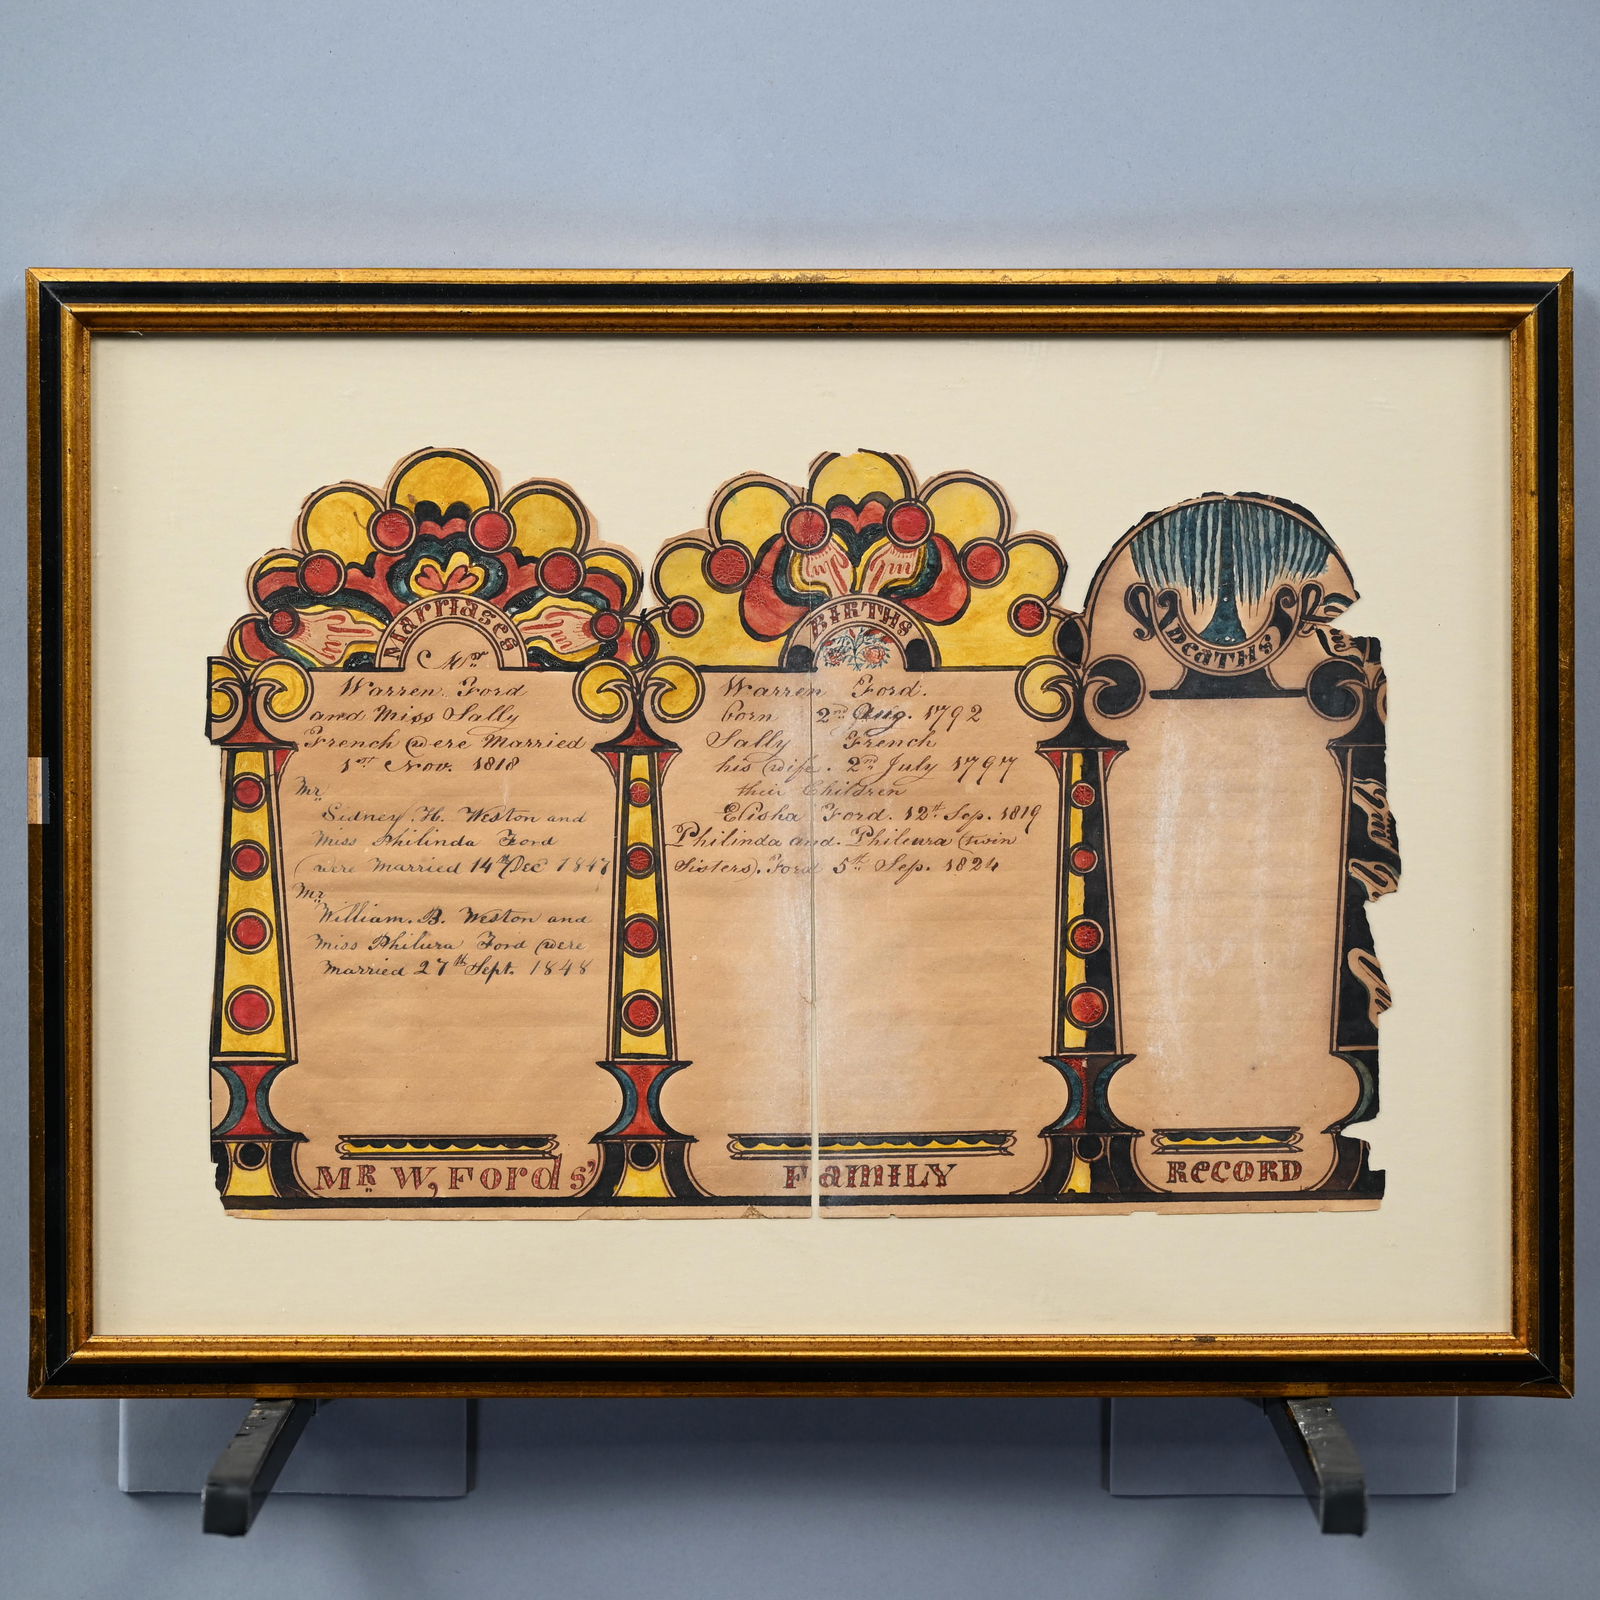 Marriages
Mr
Warren Ford
and Miss Sally
French were Married
1st Nov. 1818
Mr
Sidney. H. Weston and
Miss Philinda Ford
were Married 14th Dec 1847
Mr
William. B. Weston and
Miss Philura Ford were
Married 27th Sept. 1848
BIRTHS
Warren Ford.
born 2nd Aug. 1792
Sally French
his wife. 2nd July 1797
their Children
Elisha Ford. 12th Sep. 1819
Philinda and. Phileura (twin
Sisters). Ford 5th Sep. 1824
DEATHS
MR W, Fords' FAMILY RECORD